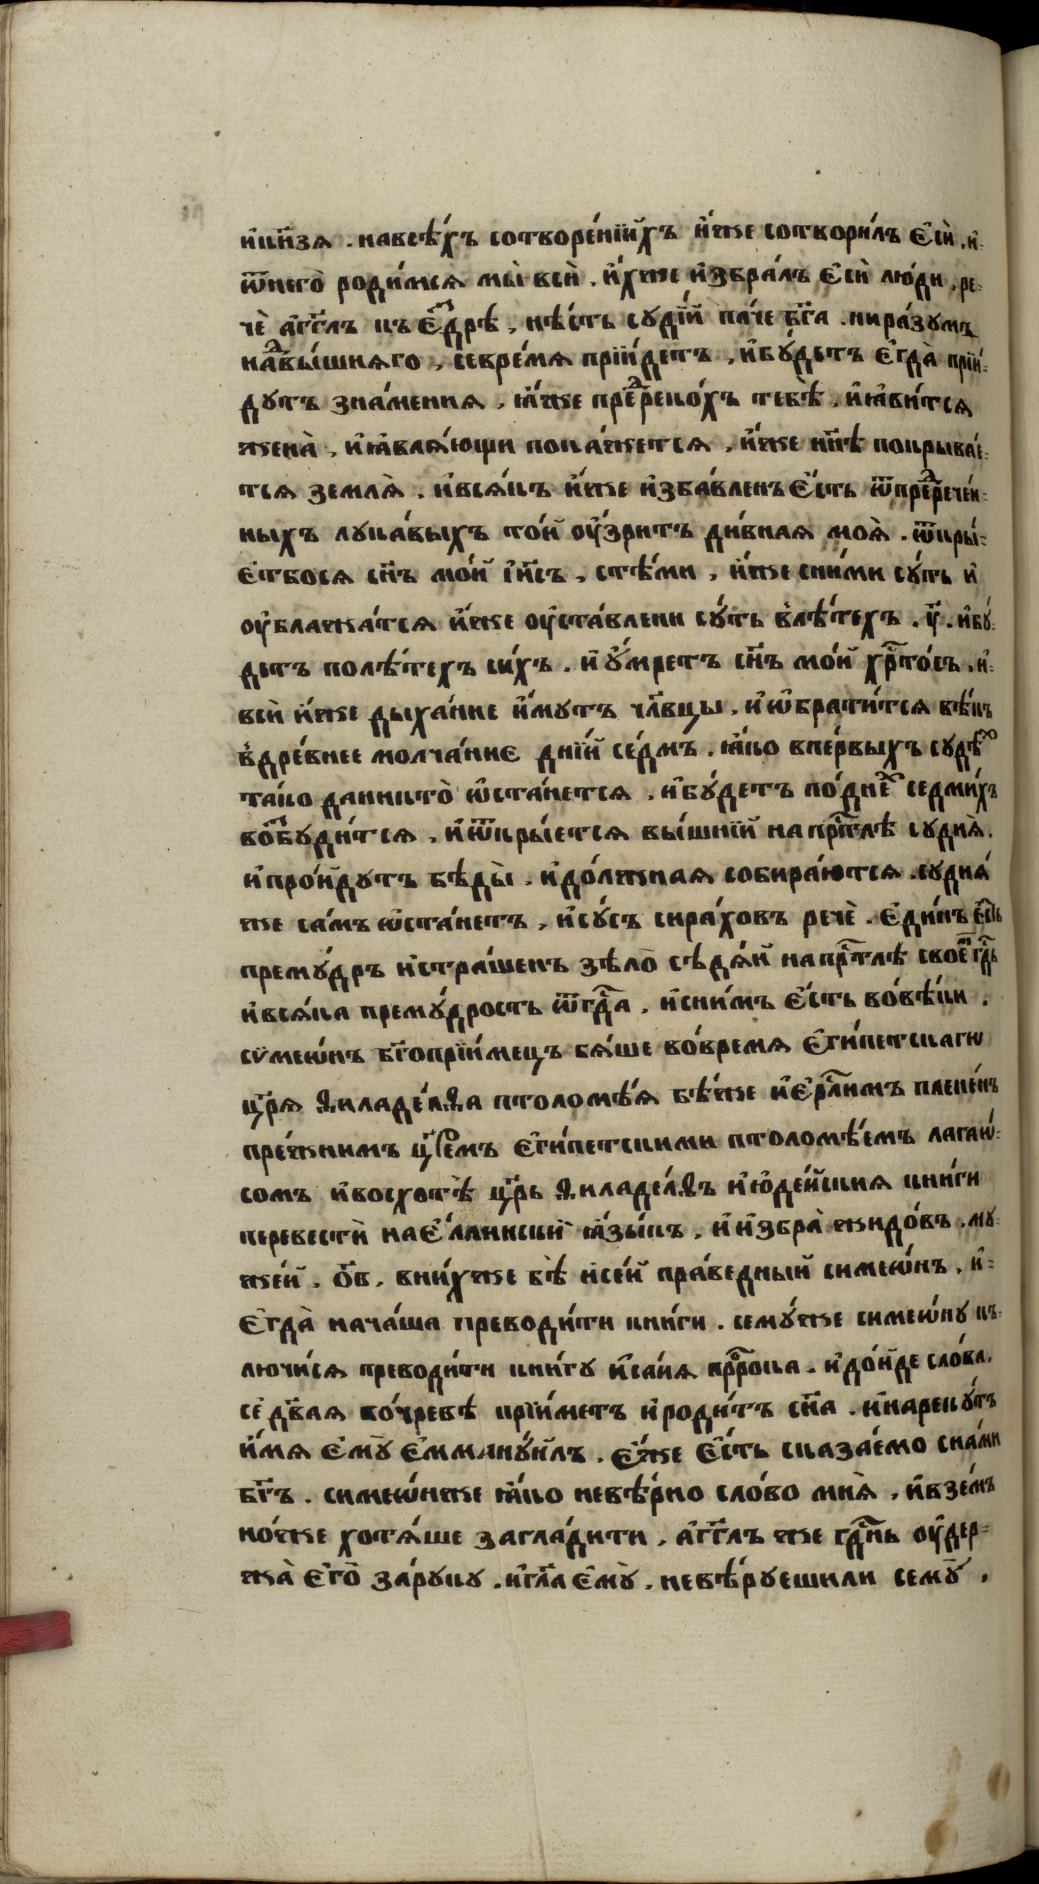 и҆кн҃зѧ . навсѣ́хъ сотворе́нїихъ и҆́же сотвори́лъ є҆сѝ . и҆-
ѿнегѡ̀ роди́мсѧ мы̀ всѝ . и҆́хже и҆збра́лъ є҆сѝ лю́ди . ре-
чѐ а҆́гг҃лъ къ є҆́здрѣ , нѣ́сть сꙋдїи́ па́че бг҃а . ни ра́зꙋмъ
на́двы́шнѧго , се вре́мѧ прїи́детъ , и҆бꙋ́детъ є҆гда̀ прїи́-
дꙋтъ зна́менїѧ , ꙗ҆́же пред̾реко́хъ тебѣ̀ , и҆ꙗ҆ви́тсѧ
жена̀ , и҆ꙗ҆влѧ́ющи пока́жетсѧ , и҆́же нн҃ѣ покрыва́е-
тсѧ землѧ̀ . и҆всѧ́къ и҆́же и҆зба́вленъ є҆́сть ѿпред̾рече́н-
ныхъ лꙋка́выхъ то́й ᲂу҆́зритъ ди́внаѧ моѧ̀ . ѿкры́-
є҆тбосѧ сн҃ъ мо́й і҆и҃съ , стѣ́ми , и҆́же сни́ми сꙋ́ть и҆
ᲂу҆блажа́тсѧ и҆́же ᲂу҆ста́влени сꙋ́ть влѣ́техъ . у҃ . и҆бꙋ́-
детъ полѣ́техъ си́хъ . и҆ ᲂу҆́мретъ сн҃ъ мо́й хрⷭ҇то́съ . и҆-
всѝ и҆́же дыха́нїе и҆́мꙋтъ чл҃вцы . и҆ѡ҆брати́тсѧ вѣ́къ
вдре́внее молча́нїе дні́й се́дмъ . ꙗ҆́ко впе́рвыхъ сꙋдѣ́хъ
та́ко да никто̀ ѡ҆ста́нетсѧ . и҆бꙋ́детъ по́днехъ седми́хъ
во́збꙋдитсѧ , и҆ѿкры́етсѧ вы́шнїй на прⷭ҇то́лѣ сꙋднѧ̀ .
и҆про́йдꙋтъ бѣды̀ . и҆до́лжнаѧ собира́ютсѧ . сꙋдиѧ́
же са́мъ ѡ҆ста́нетъ , и҆сꙋ́съ сира́ховъ речѐ . є҆ди́нъ є҆́сть
премꙋ́дръ и҆стра́шенъ зѣлѡ̀ сѣдѧ́й на прⷭ҇то́лѣ свое́мъ гдⷭ҇ь
и҆всѧ́ка премꙋ́дрость ѿгдⷭ҇а , и҆сни́мъ є҆́сть во́вѣки .
сѷмеѡ́нъ бг҃опрїи́мецъ бѧ́ше во́времѧ є҆ги́петскагѡ
цр҃ѧ̀ ѳиладе́лѳа птоломѣ́ѧ бѣ́же и҆є҆рⷭ҇ли́мъ плене́нъ
пре́жнимъ цр҃е́мъ є҆ги́петскими птоломѣ́емъ лагаѡ́-
сомъ и҆восхотѣ̀ цр҃ь ѳиладе́лѳъ и҆ю҆де́йскиѧ кни́ги
перевестѝ на є҆́ллинскїй ꙗ҆зы́къ , и҆ и҆збра̀ жидо́въ . мꙋ-
же́й . о҃в , вни́хже бѣ̀ и҆се́й пра́ведный симеѡ́нъ , и҆-
є҆гда̀ нача́ша преводи́ти кни́ги . семꙋ́же симеѡ́нꙋ къ-
лючи́сѧ преводи́ти кни́гꙋ и҆са́їѧ прⷪ҇ро́ка . и҆до́йде сло́ва .
се́ дв҃аѧ во́чревѣ прїи́метъ и҆роди́тъ сн҃а . и҆нарекꙋ́тъ
и҆́мѧ є҆мꙋ̀ є҆мманꙋ́илъ . є҆́же є҆́сть сказа́емо сна́ми
бг҃ъ . симеѡ́нже ꙗ҆́ко невѣ́рно сло́во мнѧ̀ , и҆взе́мъ
но́же хотѧ́ше загла́дити , а҆́гг҃лъ же гдⷭ҇нь ᲂу҆дер-
жа̀ є҆го̀ за́рꙋкꙋ . и҆гл҃а є҆мꙋ̀ . невѣ́рꙋешили семꙋ̀ .